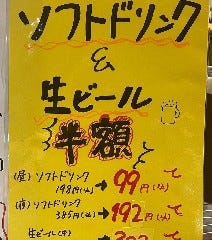 ソフトドリンク
&
生ビール
半額
(昼) ソフトドリンク
198円(込)→99円(込)で
(夜) ソフトドリンク
385円(込)→192円(込)で
生ビール(中)